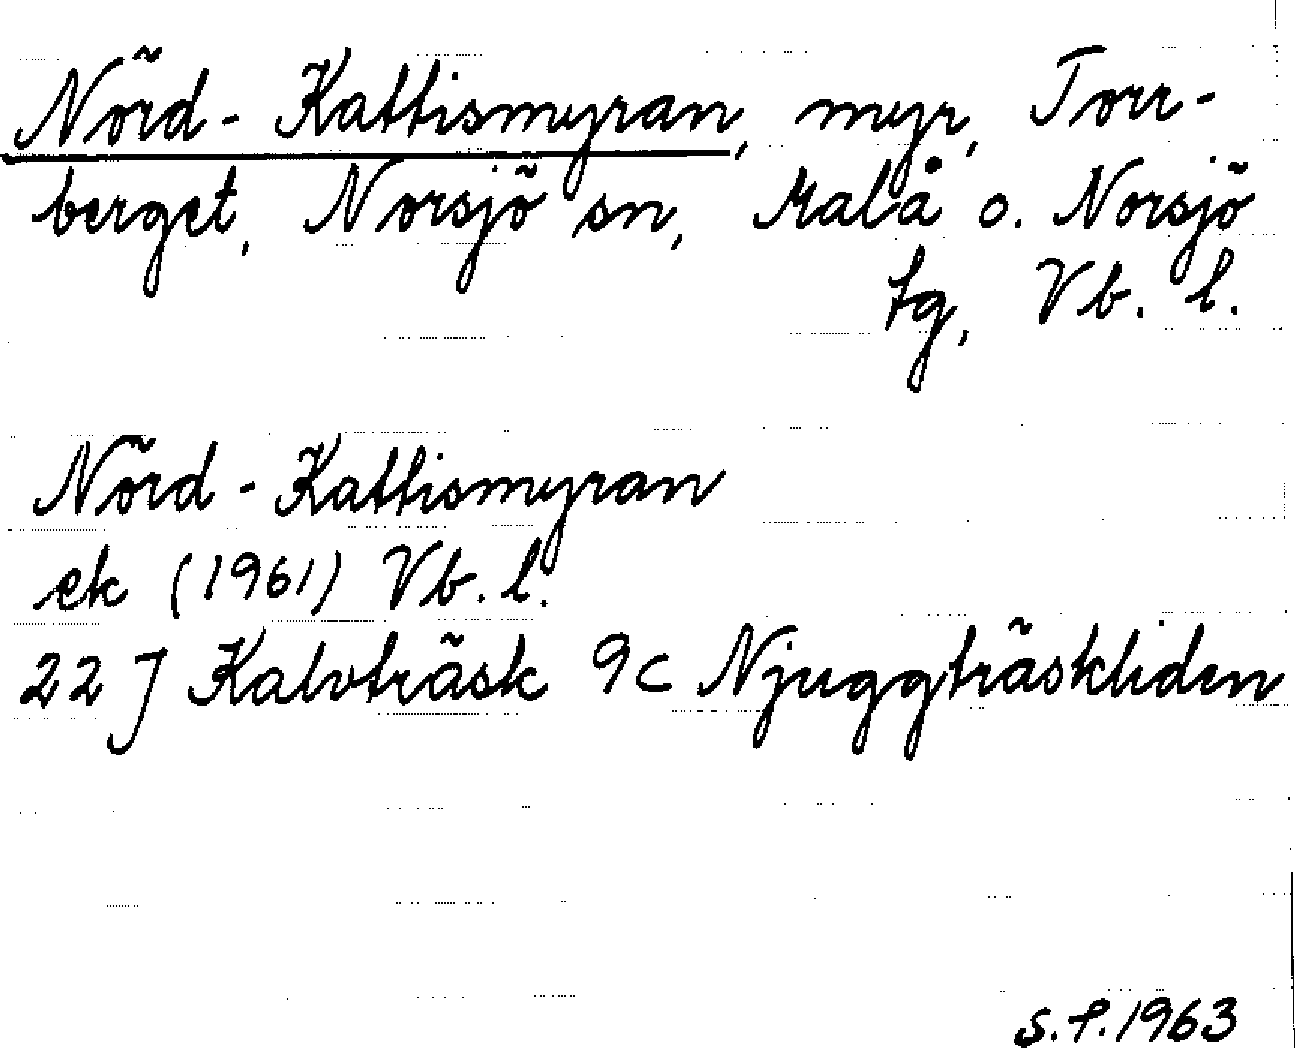 Nörd-Kattismyran, myr, Torr-
berget, Norsjö sn, Malå o. Norsjö
tg, Vb. l.
Nörd-Kattismyran
ek (1961) Vb. l.
22 J Kalvträsk 9c Njuggträskliden
S.P. 1963